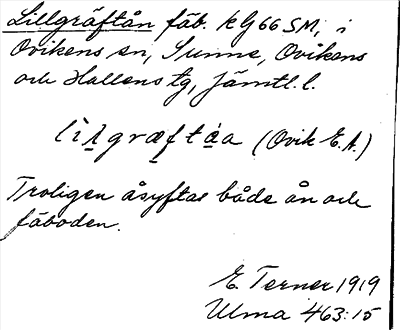 Lillgräftån fäb. kG66SM, i
Ovikens sn, Sunne, Ovikens
och Hallens tg, Jämtl. l.
lìlgræftá̀a (Ovik E.A.)
Troligen åsyftas både ån och
fäboden.
E Terner 1919
Ulma 463:15